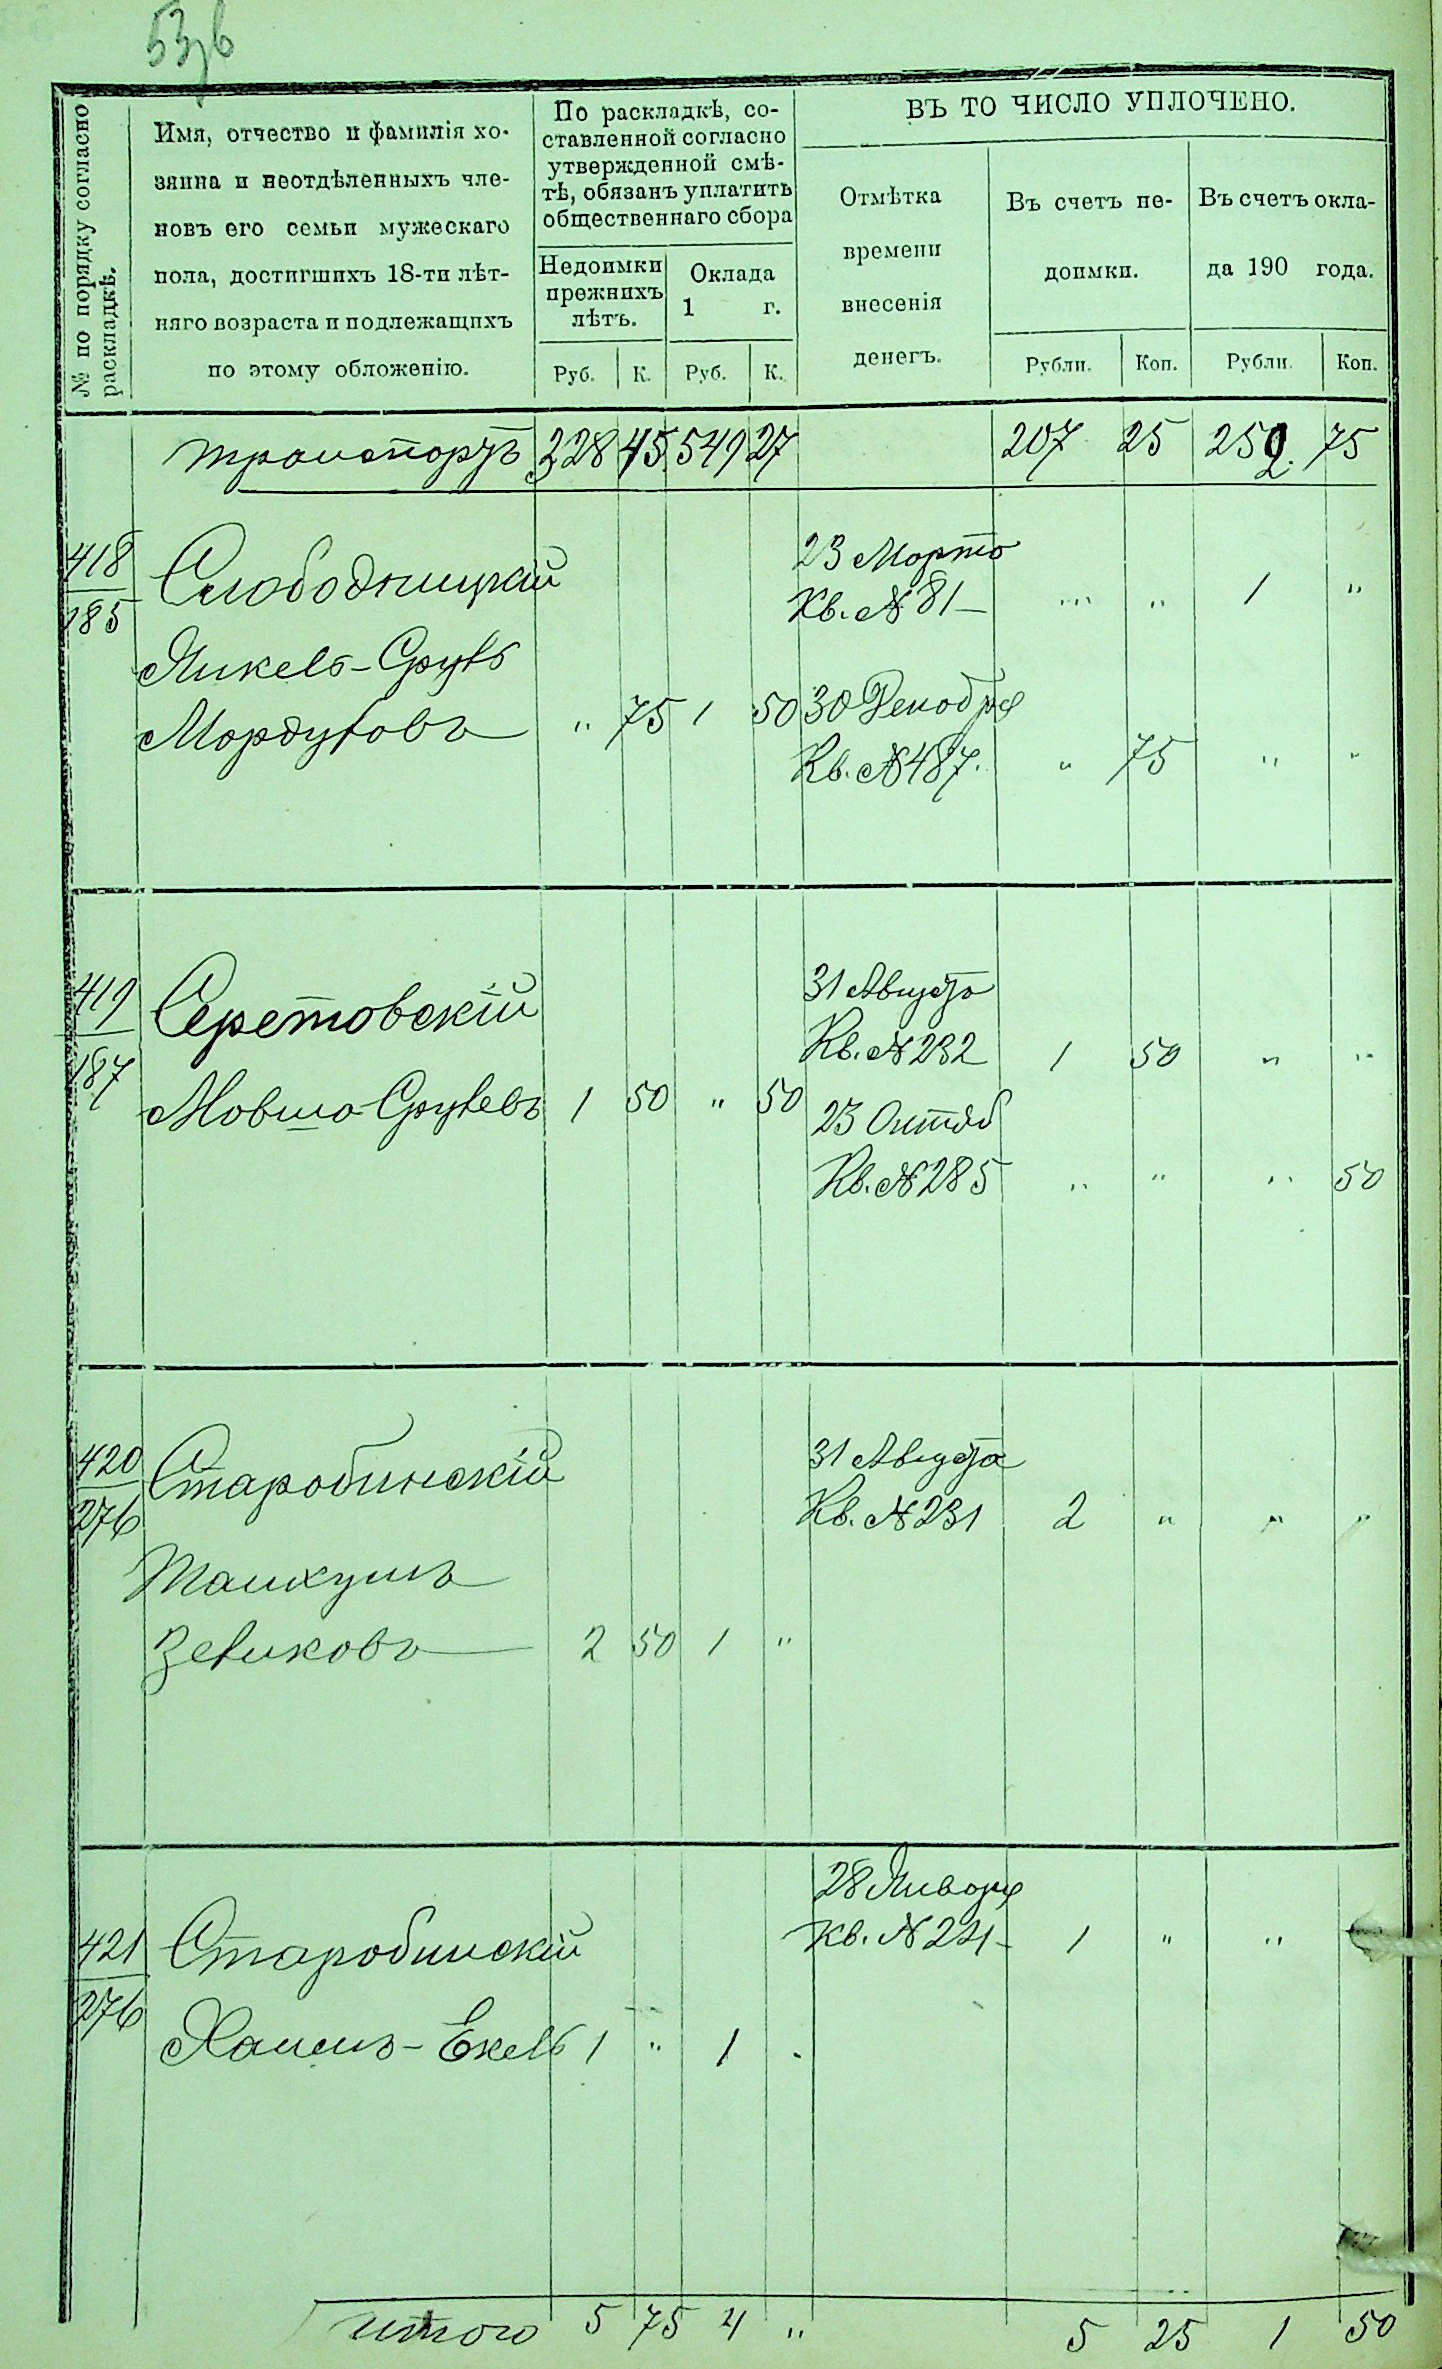 53
№ по порядку согласно
раскладкѣ.
Имя, отчество и фамилія хо-
зяина и неотдѣленныхъ чле-
новъ его семьи мужескаго
пола, достигшихъ 18-ти лѣт-
няго возраста и подлежащихъ
по этому обложенію.
По раскладкѣ, со-
ставленной согласно
утвержденной смѣ-
тѣ, обязанъ уплатить
общественнаго сбора
Недоимки
прежнихъ
лѣтъ.
Оклада
1 г.
Руб. К. Руб. К.
ВЪ ТО ЧИСЛО УПЛОЧЕНО.
Отмѣтка
времени
внесенія
денегъ.
Въ счетъ не-
доимки.
Въ счетъ окла-
да 190 года.
Рубли. Коп. Рубли. Коп.
транспортъ 328 45 549 27 207 25 252 75
418
185
Слободницкій
23 Марта
Кв. № 81 " " 1 "
Янкель-Сруль
Мордуховъ " 75 1 50
30 Декабря
Кв. № 487. " 75 " "
419
187
Серетовскій
31 Августа
Кв. № 232 1 50 " "
Мовша Срулевъ 1 50 " 50
23 Октяб
Кв. № 285 " " " 50
420
276
Старобинскій
31 Августа
Кв. № 231 2 " " "
Танхумъ
Зеликовъ 2 50 1 "
421
276
Старобинскій
28 Января
Кв. № 1 " "
Хаимъ-Екель 1 " 1
итого 5 75 4 " 5 25 1 50